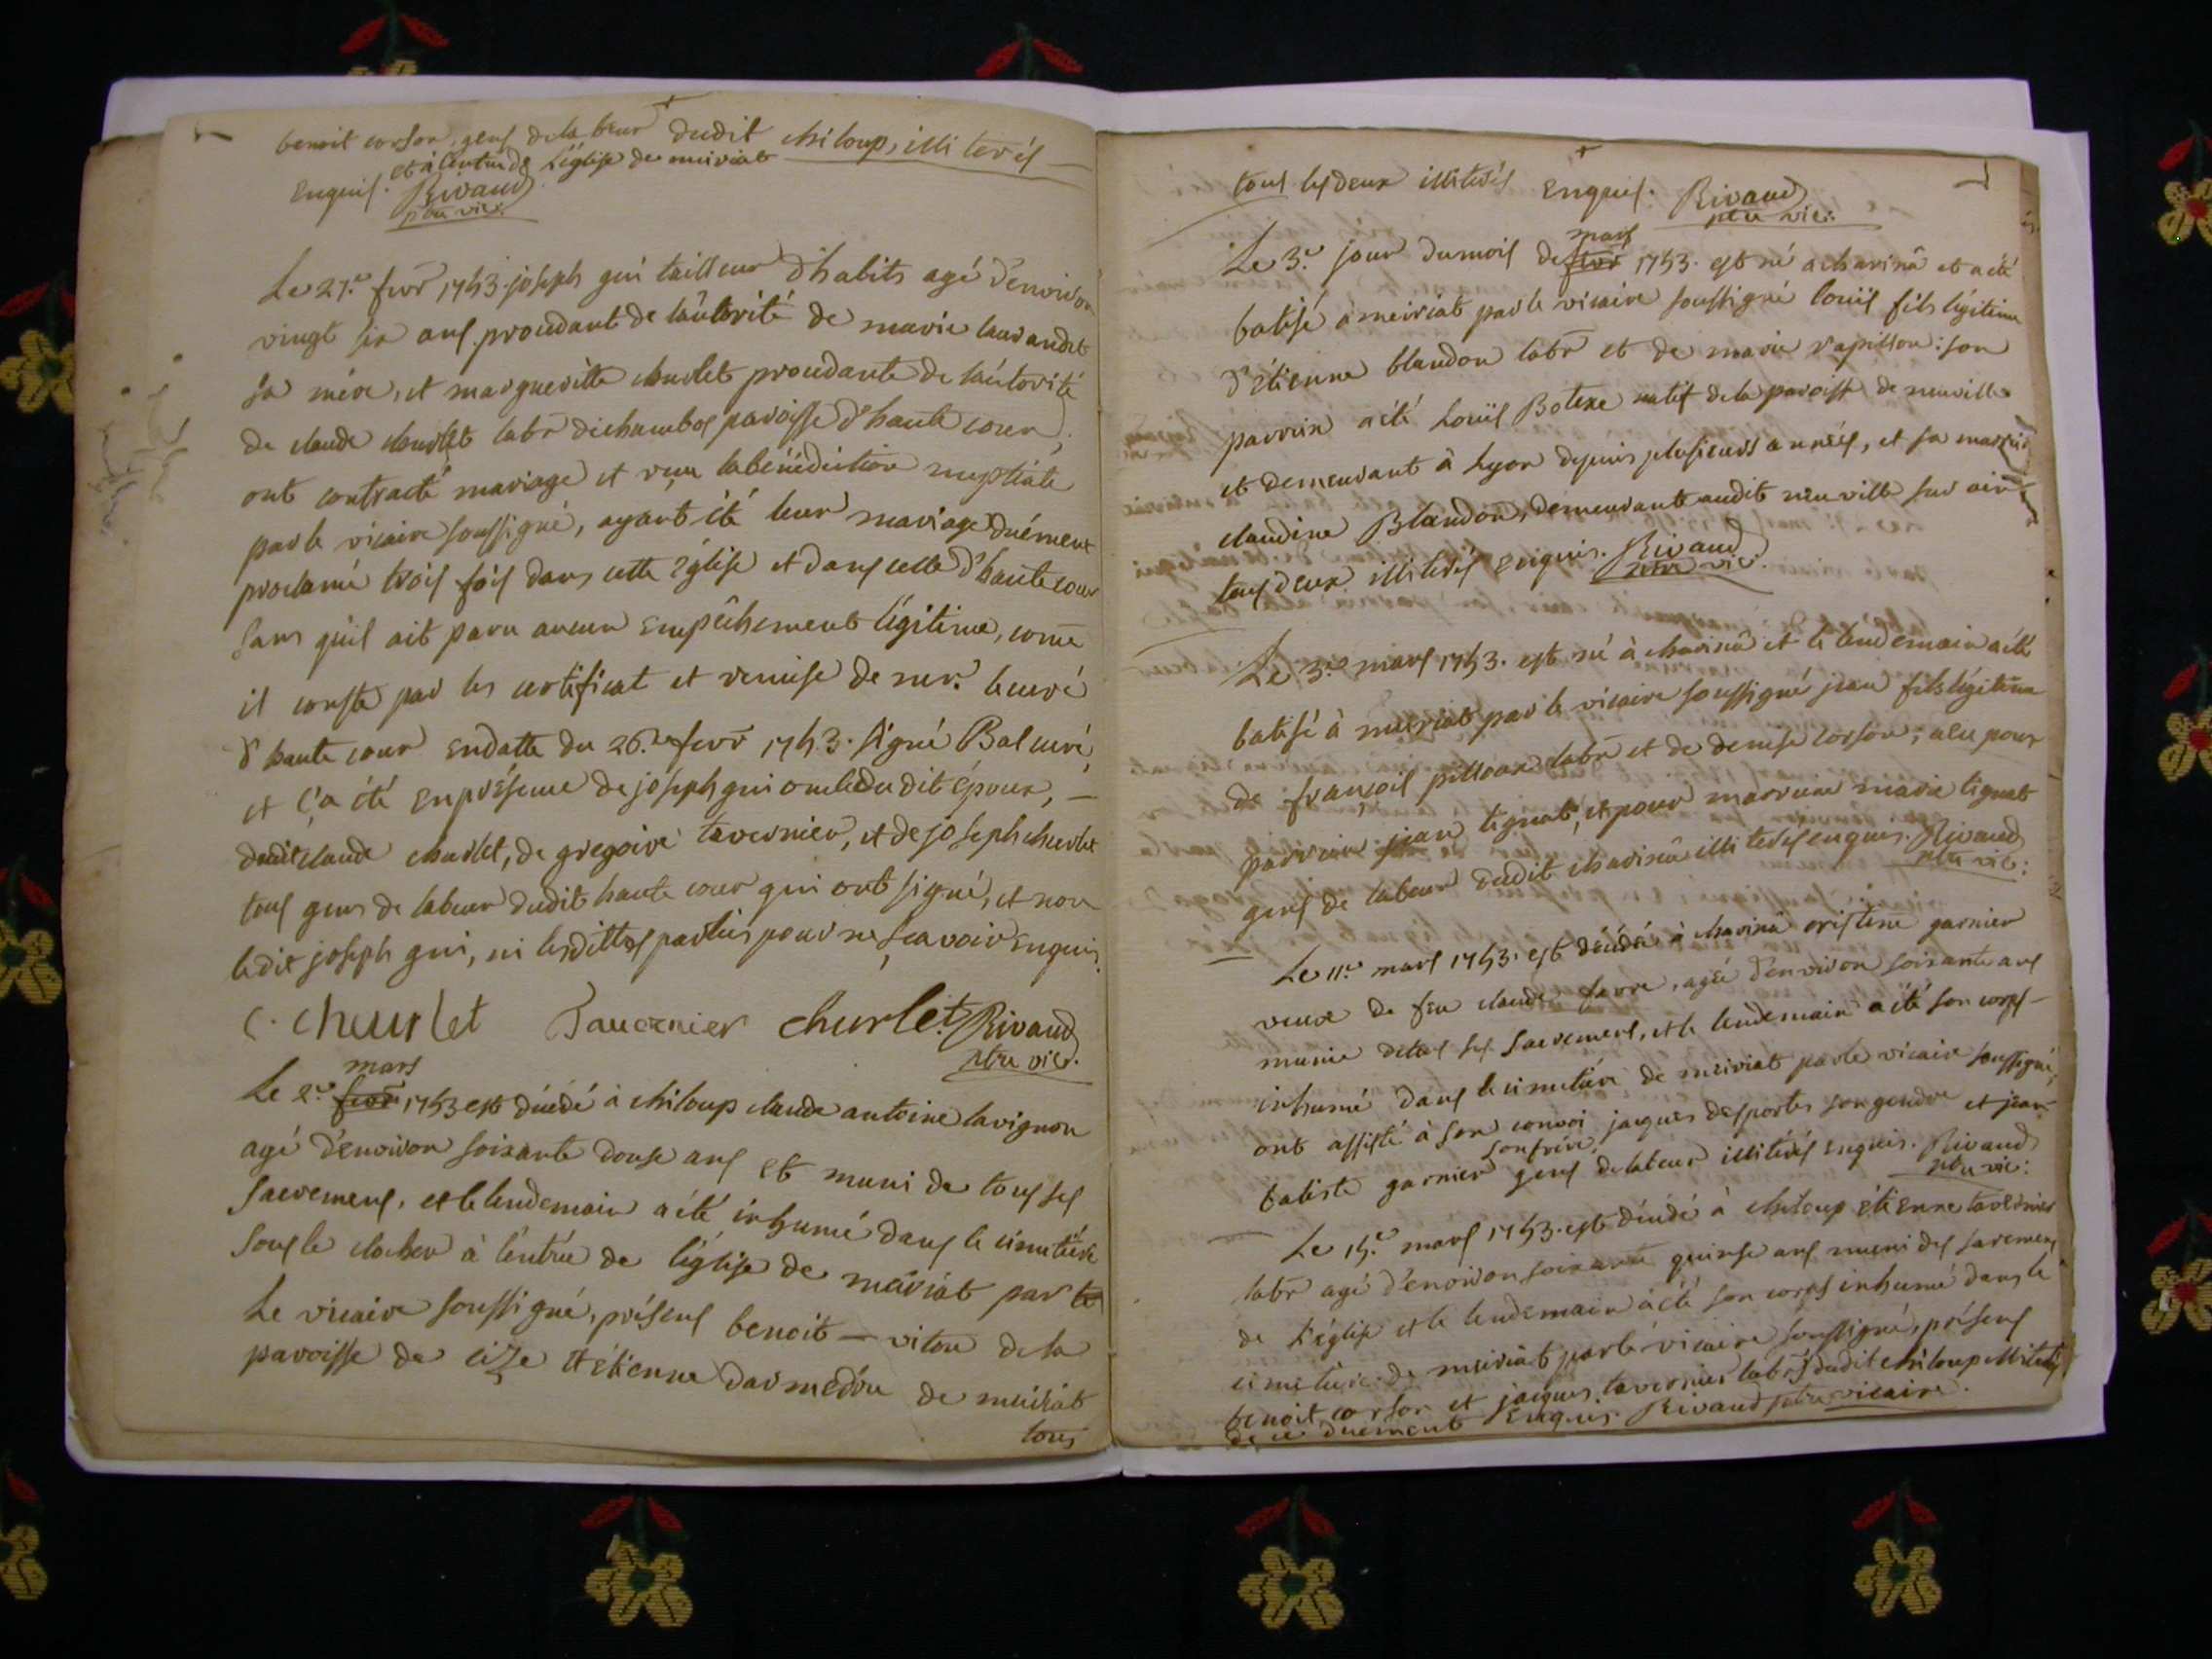 benoit corson, gens de labeur dudit chiloup, illiterés
et à lentrée de L'église de meiriat
Enquis. Rivaud
ptre vic.
Le 27.e fevr 1753. joseph gui tailleur d'habits agé d'environ
vingt six ans, procedant de lautorité de marie lavandet
sa mére, et margueritte churlet procedante de láutorité
de claude churlet labr dechambos paroisse d'haute cour,
ont contracté mariage et reçu la bénédiction nuptiale
par le vicaire soussigné, ayant été leur mariage duément
proclamé trois fois dans cette Église et dans celle d'haute cour
sans quil ait paru aucun empêchement légitime, come
il conste par les certificat et remise de mr. le curé
d'haute cour en datte du 26.e fevr 1753. signé Bal curé,
et ç'a été en présence de joseph gui oncle dudit époux, —
dudit claude churlet, de gregoire tavernier, et de joseph churlet
tous gens de labeur dudit haute cour qui ont signé, et non
ledit joseph gui, ni lesdittes parties pour ne sçavoir enquis.
C. cheurlet Tauernier churlet Rivaud
ptre vic.
mars
Le 2.e fevr 1753 est décédé à chiloup claude antoine lavignon
agé d'environ soixante douse ans et muni de tous ses
sacremens, et le lendemain a été inhumé dans le cimetière
sous le clocher à l'entrée de l'église de meiriat par le
Le vicaire soussigné, présens benoit — viton de la
paroisse de cize et étienne darmedru de meiriat
tous
tous les deux illiterés Enquis. Rivaud
ptre vic.
mars
Le 3.e jour du mois de fevr 1753. est né a charinâ et a été
batisé à meiriat par le vicaire soussigné loüis fils légitime
d'étienne blandon labr et de marie rapillon: son
parrain a été Loüis Botexe natif de la paroisse de neuville
et demeurant à Lyon depuis plusieurs années, et sa marraine
claudine Blandon, demeurante audit neuville sur ain
tous deux illiterés enquis. Rivaud
ptre vic.
Le 3.e mars 1753. est né à charinâ et le lendemain a été
batisé à meiriat par le vicaire soussigné jean fils légitime
de françois pilloux labr et de denise corson; a eu pour
parrain jean tignat, et pour marraine marie tignat
gens de labeur dudit charinâ illiterés enquis. Rivaud
ptre vic.
Le 11.e mars 1753. est décédée à charinâ cristine garnier
veuve de feu claude favre, agée d'environ soixante ans
munie detous ses sacremens, et le lendemain a été son corps —
inhumé dans le cimetière de meiriat par le vicaire soussigné,
ont assisté à son convoi jaques desportes son gendre et jean
son frère
batiste garnier gens de labeur illiterés enquis. Rivaud
ptre vic.
Le 15.e mars 1753. est décédé à chiloup étienne tavernier
labr agé d'environ soixante quinse ans muni des sacremens
de l'église et le lendemain a été son corps inhumé dans le
cimetière de meiriat par le vicaire soussigné, présens
benoit corson et jaques tavernier labrs dudit chiloup illiterés
de ce duement Enquis. Rivaud ptre vicaire.